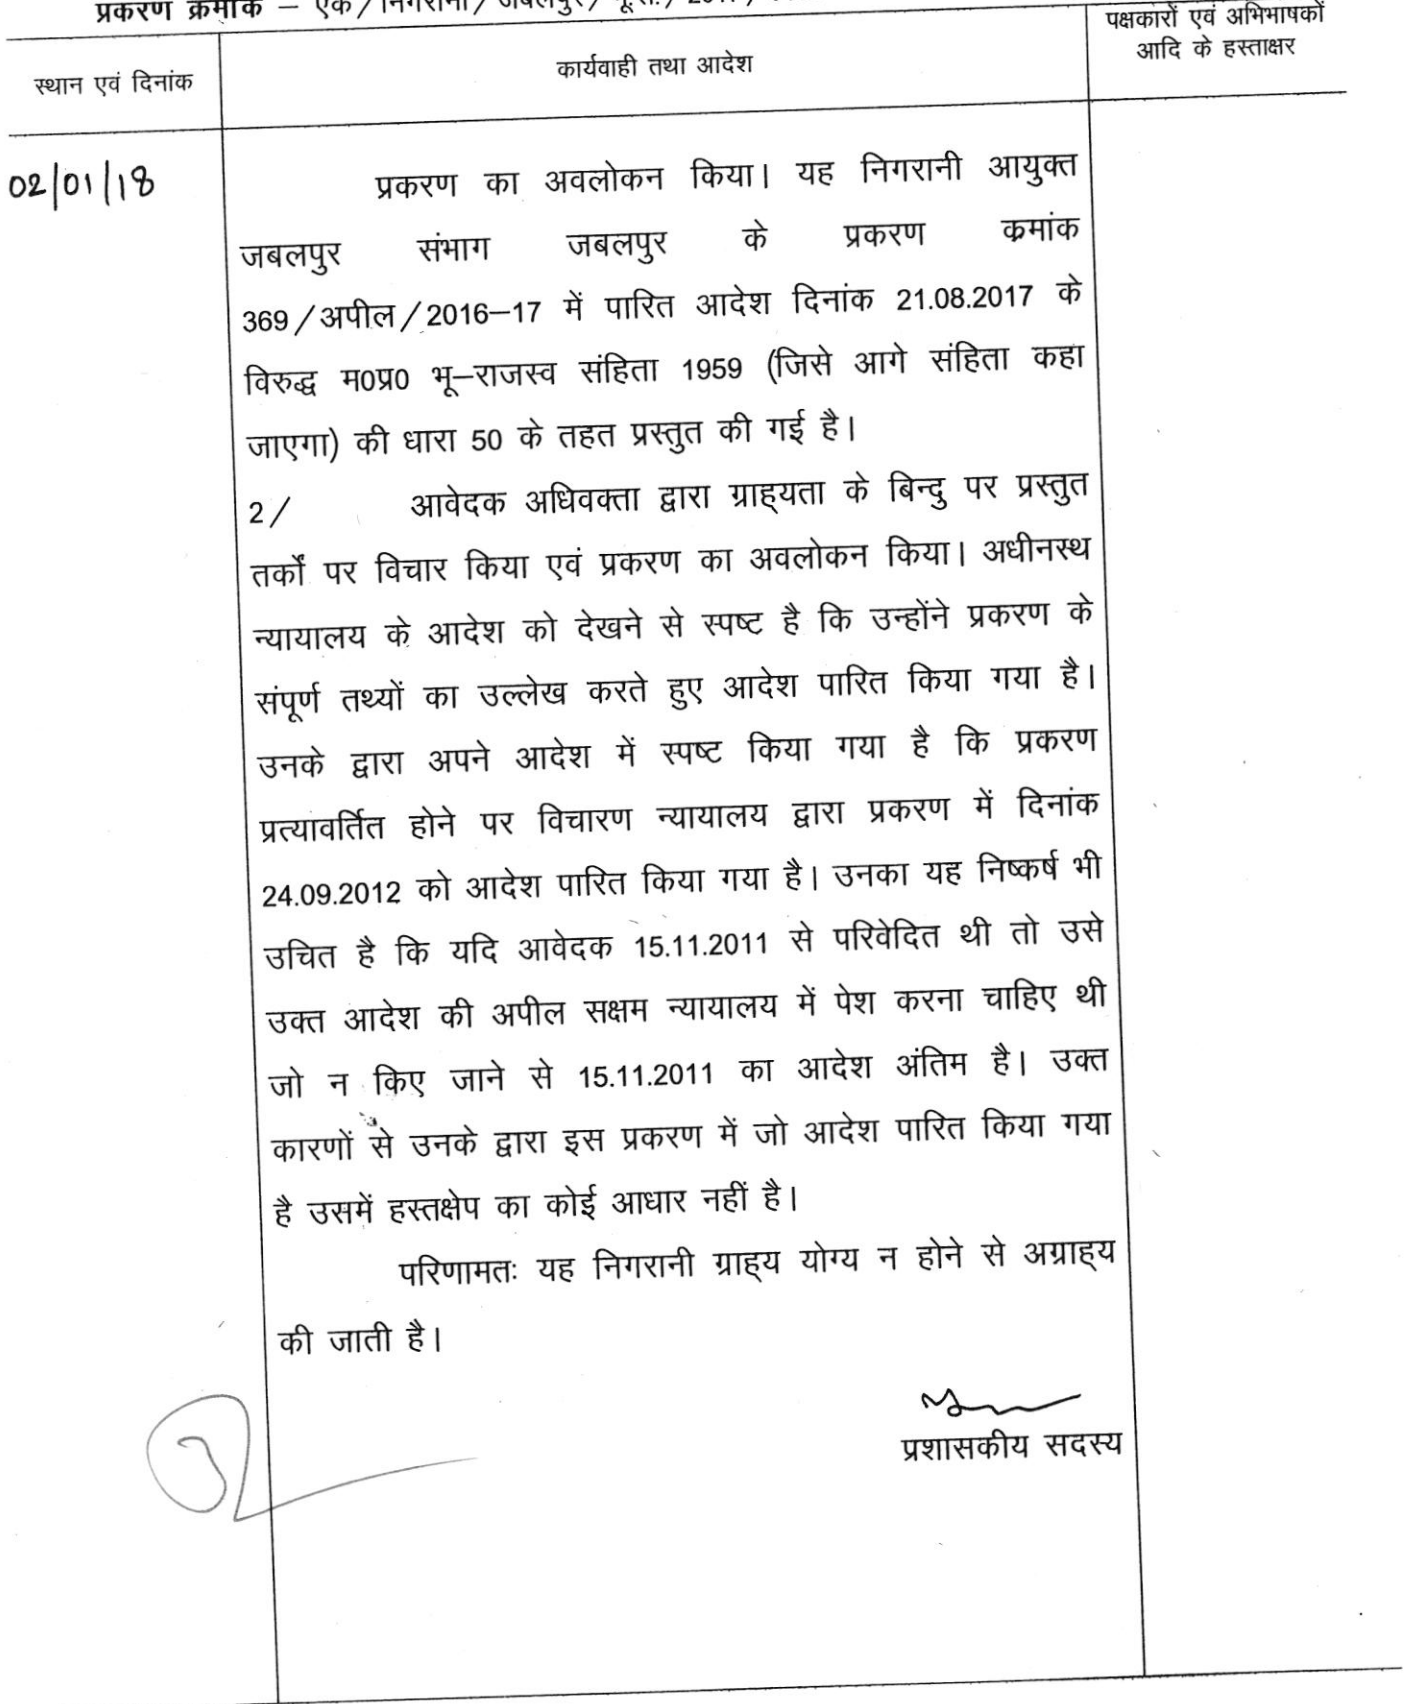 प्रकरण क्रमांक – एक/निगरानी/जबलपुर/भू.रा./2017/
स्थान एवं दिनांक
कार्यवाही तथा आदेश
पक्षकारों एवं अभिभाषकों
आदि के हस्ताक्षर
02/01/18
प्रकरण का अवलोकन किया। यह निगरानी आयुक्त
जबलपुर संभाग जबलपुर के प्रकरण क्रमांक
369/अपील/2016–17 में पारित आदेश दिनांक 21.08.2017 के
विरुद्ध म0प्र0 भू–राजस्व संहिता 1959 (जिसे आगे संहिता कहा
जाएगा) की धारा 50 के तहत प्रस्तुत की गई है।
2/ आवेदक अधिवक्ता द्वारा ग्राह्यता के बिन्दु पर प्रस्तुत
तर्कों पर विचार किया एवं प्रकरण का अवलोकन किया। अधीनस्थ
न्यायालय के आदेश को देखने से स्पष्ट है कि उन्होंने प्रकरण के
संपूर्ण तथ्यों का उल्लेख करते हुए आदेश पारित किया गया है।
उनके द्वारा अपने आदेश में स्पष्ट किया गया है कि प्रकरण
प्रत्यावर्तित होने पर विचारण न्यायालय द्वारा प्रकरण में दिनांक
24.09.2012 को आदेश पारित किया गया है। उनका यह निष्कर्ष भी
उचित है कि यदि आवेदक 15.11.2011 से परिवेदित थी तो उसे
उक्त आदेश की अपील सक्षम न्यायालय में पेश करना चाहिए थी
जो न किए जाने से 15.11.2011 का आदेश अंतिम है। उक्त
कारणों से उनके द्वारा इस प्रकरण में जो आदेश पारित किया गया
है उसमें हस्तक्षेप का कोई आधार नहीं है।
परिणामतः यह निगरानी ग्राह्य योग्य न होने से अग्राह्य
की जाती है।
प्रशासकीय सदस्य